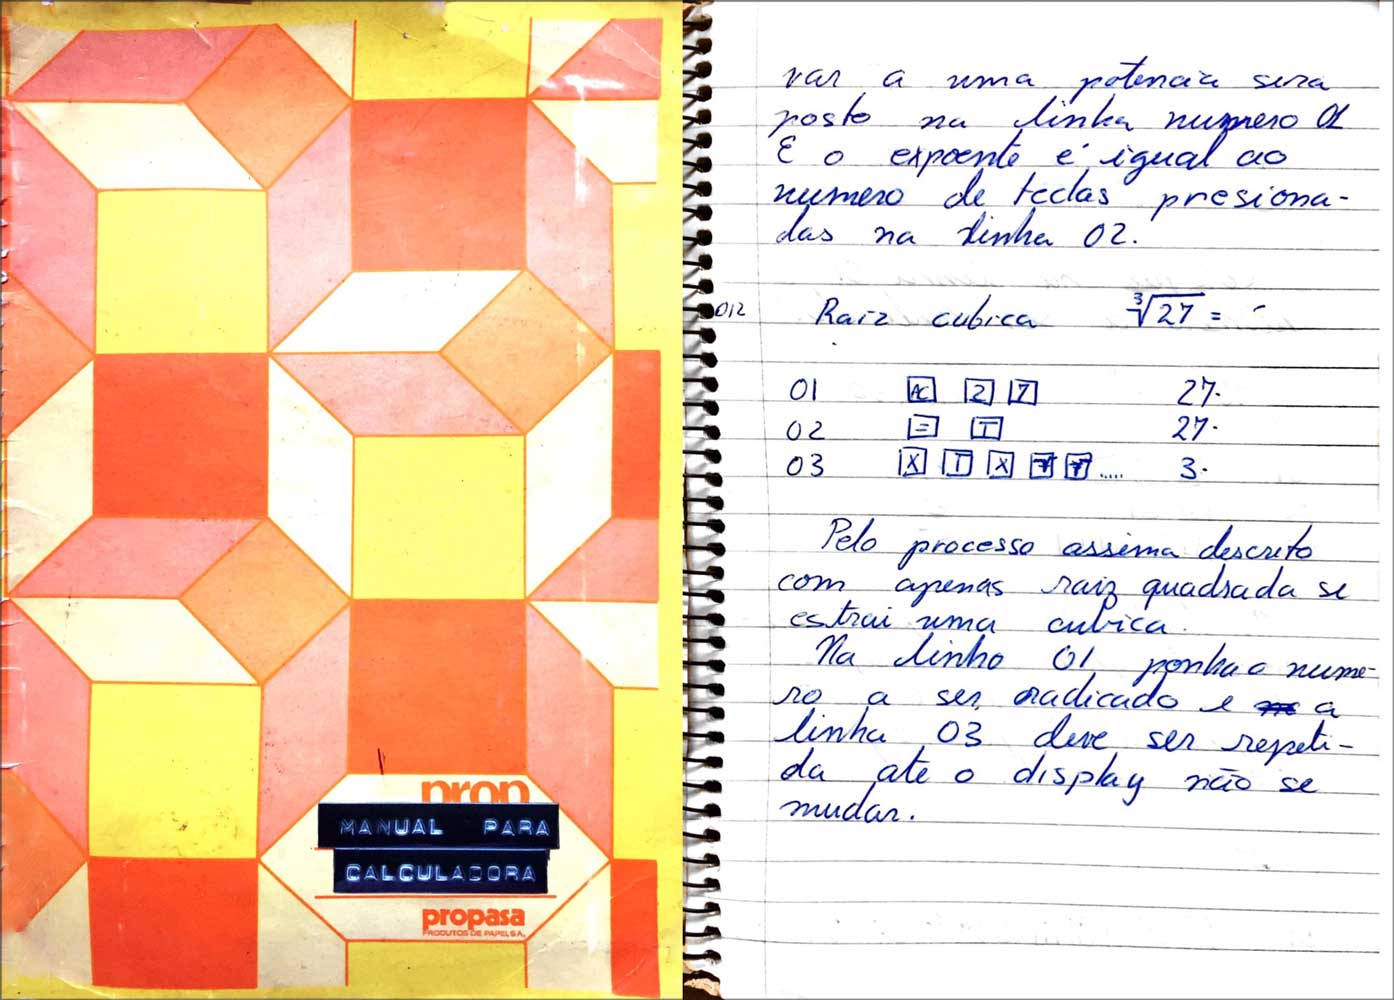 prop
MANUAL PARA
CALCULADORA
propasa
PRODUTOS DE PAPEL S.A.
var a uma potencia sera
posto na linha numero 01
E o expoente é igual ao
numero de teclas presiona-
das na linha 02.
012 Raiz cubica ³√27 =
01 AC 2 7 27.
02 = 27.
03 X X ..... 3.
Pelo processo assima descrito
com apenas raiz quadrada se
estrai uma cubica.
Na linha 01 ponha o nume-
ro a ser radicado e a
linha 03 deve ser repeti-
da ate o display não se
mudar.